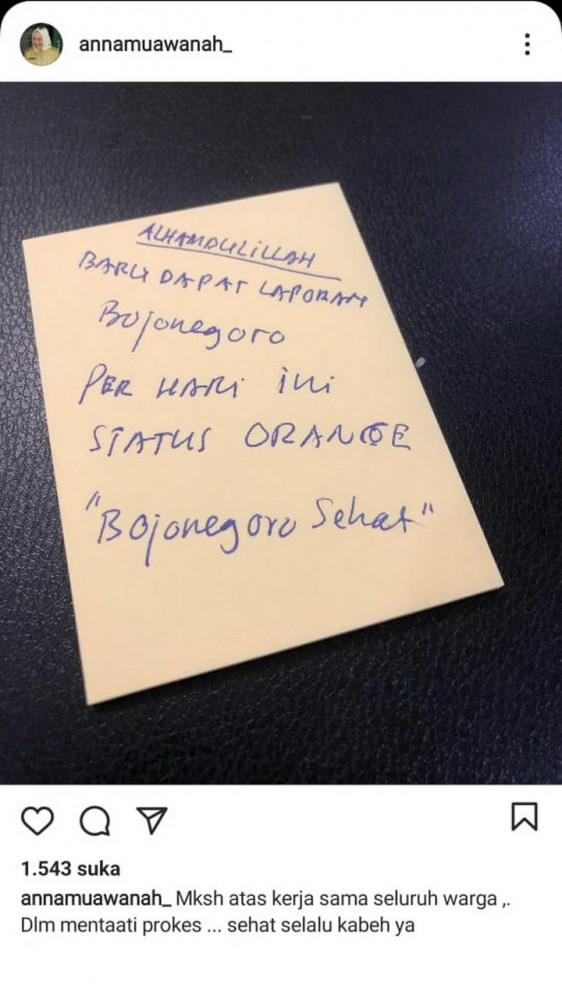 annamuawanah_
ALHAMDULILLAH
BARU DAPAT LAPORAN
Bojonegoro
PER HARI INI
STATUS ORANGE
"Bojonegoro Sehat"
1.543 suka
annamuawanah_ Mksh atas kerja sama seluruh warga ,.
Dlm mentaati prokes ... sehat selalu kabeh ya